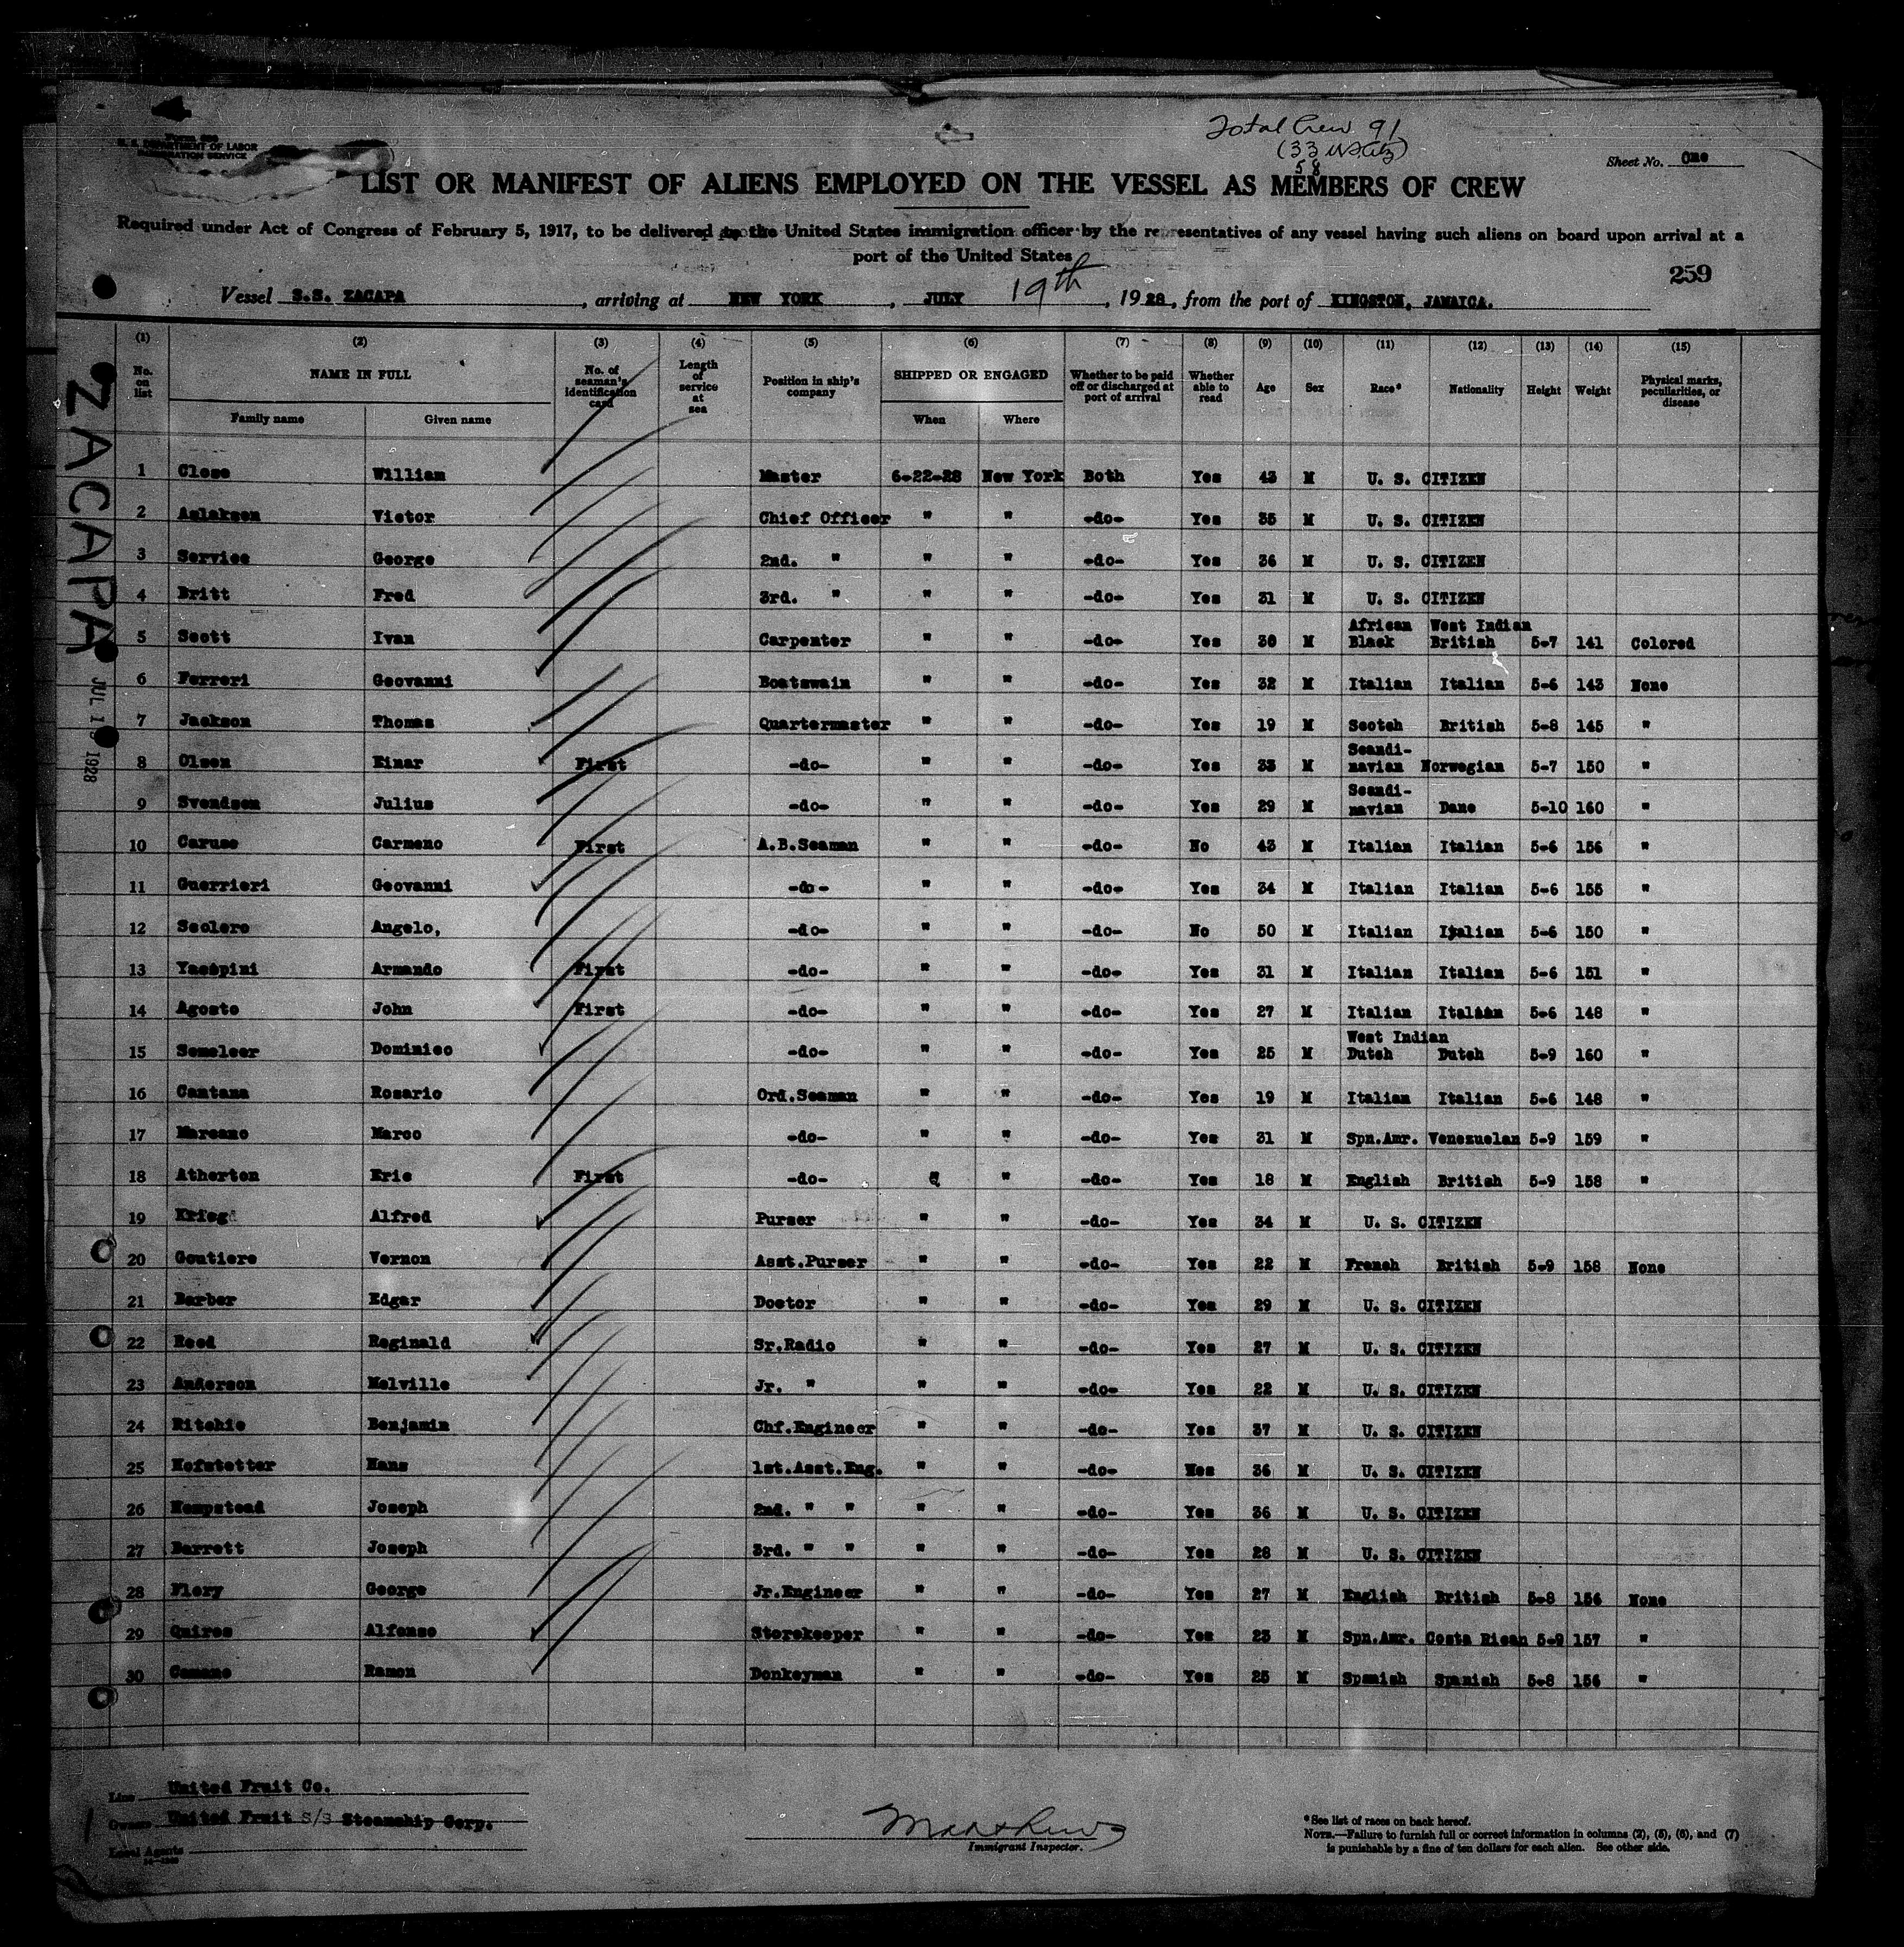 Total Crew 91
(33 US Ctz)
58
U. S. DEPARTMENT OF LABOR
IMMIGRATION SERVICE
Sheet No. One
LIST OR MANIFEST OF ALIENS EMPLOYED ON THE VESSEL AS MEMBERS OF CREW
Required under Act of Congress of February 5, 1917, to be delivered to the United States immigration officer by the representatives of any vessel having such aliens on board upon arrival at a
port of the United States
259
Vessel S.S. ZACAPA, arriving at NEW YORK, JULY 19th, 1928, from the port of KINGSTON, JAMAICA.
(1) (2) (3) (4) (5) (6) (7) (8) (9) (10) (11) (12) (13) (14) (15)
No. on list NAME IN FULL No. of seaman's identification card Length of service at sea Position in ship's company SHIPPED OR ENGAGED Whether to be paid off or discharged at port of arrival Whether able to read Age Sex Race* Nationality Height Weight Physical marks, peculiarities, or disease
Family name Given name When Where
1 Close William Master 6-22-28 New York Both Yes 43 M U. S. CITIZEN
2 Aslaksen Victor Chief Officer " " -do- Yes 35 M U. S. CITIZEN
3 Service George 2nd. " " " -do- Yes 36 M U. S. CITIZEN
4 Britt Fred 3rd. " " " -do- Yes 31 M U. S. CITIZEN
5 Scott Ivan Carpenter " " -do- Yes 30 M African Black West Indian British 5-7 141 Colored
6 Ferreri Geovanni Boatswain " " -do- Yes 32 M Italian Italian 5-6 143 None
7 Jackson Thomas Quartermaster " " -do- Yes 19 M Scotch British 5-8 145 "
8 Olsen Einar First -do- " " -do- Yes 33 M Scandi-navian Norwegian 5-7 150 "
9 Svendsen Julius -do- " " -do- Yes 29 M Scandi-navian Dane 5-10 160 "
10 Caruso Carmeno First A.B.Seaman " " -do- No 43 M Italian Italian 5-6 156 "
11 Guerrieri Geovanni -do- " " -do- Yes 34 M Italian Italian 5-6 155 "
12 Scolero Angelo, -do- " " -do- No 50 M Italian Italian 5-6 150 "
13 Armando First -do- " " -do- Yes 31 M Italian Italian 5-6 151 "
14 Agosto John First -do- " " -do- Yes 27 M Italian Italian 5-6 148 "
15 Semeleer Dominico -do- " " -do- Yes 25 M West Indian Dutch Dutch 5-9 160 "
16 Cantana Rosario Ord.Seaman " " -do- Yes 19 M Italian Italian 5-6 148 "
17 Marcano Marco -do- " " -do- Yes 31 M Spn.Amr. Venezuelan 5-9 159 "
18 Atherton Eric First -do- " -do- Yes 18 M English British 5-9 158 "
19 Krieg Alfred Purser " " -do- Yes 34 M U. S. CITIZEN
20 Goutiere Vernon Asst.Purser " " -do- Yes 22 M French British 5-9 158 None
21 Barber Edgar Doctor " " -do- Yes 29 M U. S. CITIZEN
22 Reed Reginald Sr.Radio " " -do- Yes 27 M U. S. CITIZEN
23 Anderson Melville Jr. " " " -do- Yes 22 M U. S. CITIZEN
24 Ritchie Benjamin Chf.Engineer " " -do- Yes 37 M U. S. CITIZEN
25 Hofstetter Hans 1st.Asst.Eng. " " -do- 36 M U. S. CITIZEN
26 Hempstead Joseph 2nd. " " " " -do- Yes 36 M U. S. CITIZEN
27 Barrett Joseph 3rd. " " " " -do- Yes 28 M U. S. CITIZEN
28 Flory George Jr.Engineer " " -do- Yes 27 M English British 5-8 156 None
29 Quiros Alfonso Storekeeper " " -do- Yes 23 M Spn.Amr. Costa Rican 5-9 157 "
30 Ramon Donkeyman " " -do- Yes 25 M Spanish Spanish 5-8 156 "
ZACAPA
JUL 19 1928
Line United Fruit Co.
Owners United Fruit S/S Steamship Corp.
Local Agents
Immigrant Inspector.
*See list of races on back hereof.
NOTE.—Failure to furnish full or correct information in columns (2), (5), (6), and (7)
is punishable by a fine of ten dollars for each alien. See other side.